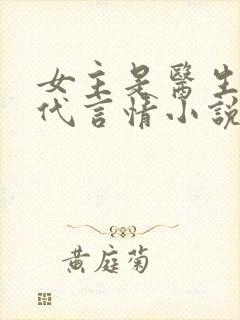 女主是醫生
代言情小說
黃庭菊